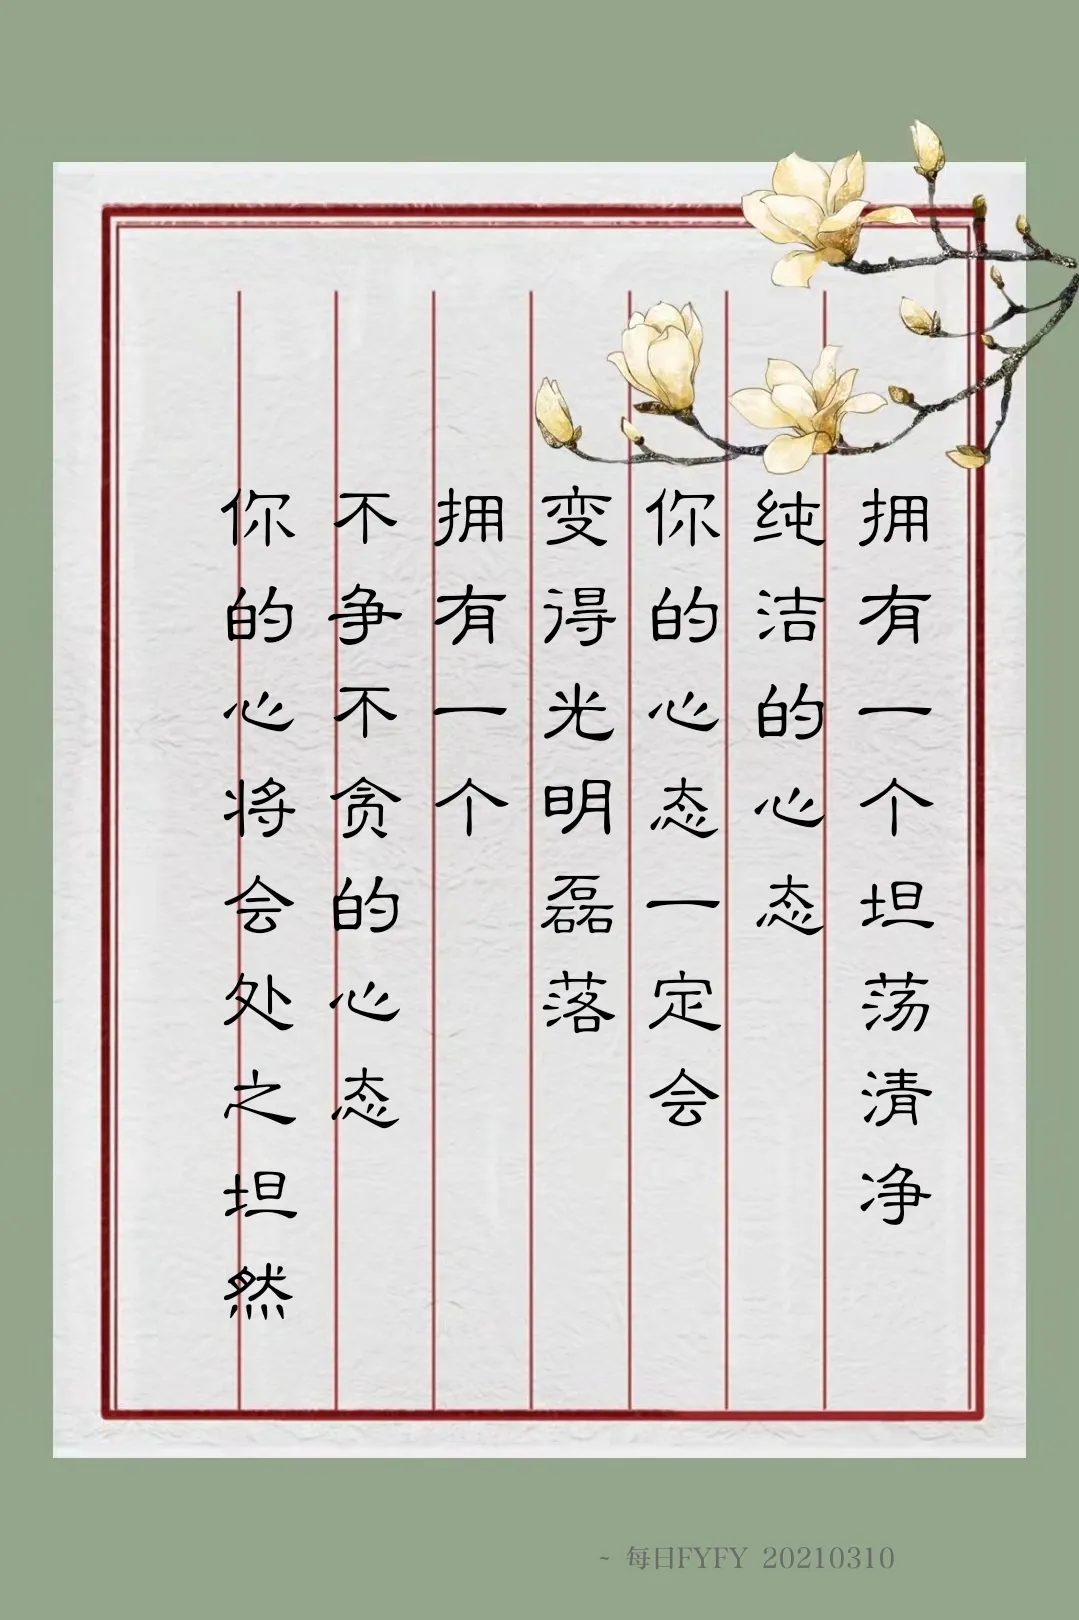 拥有一个坦荡清净
纯洁的心态
你的心态一定会
变得光明磊落
拥有一个
不争不贪的心态
你的心将会处之坦然
~ 每日FYFY 20210310